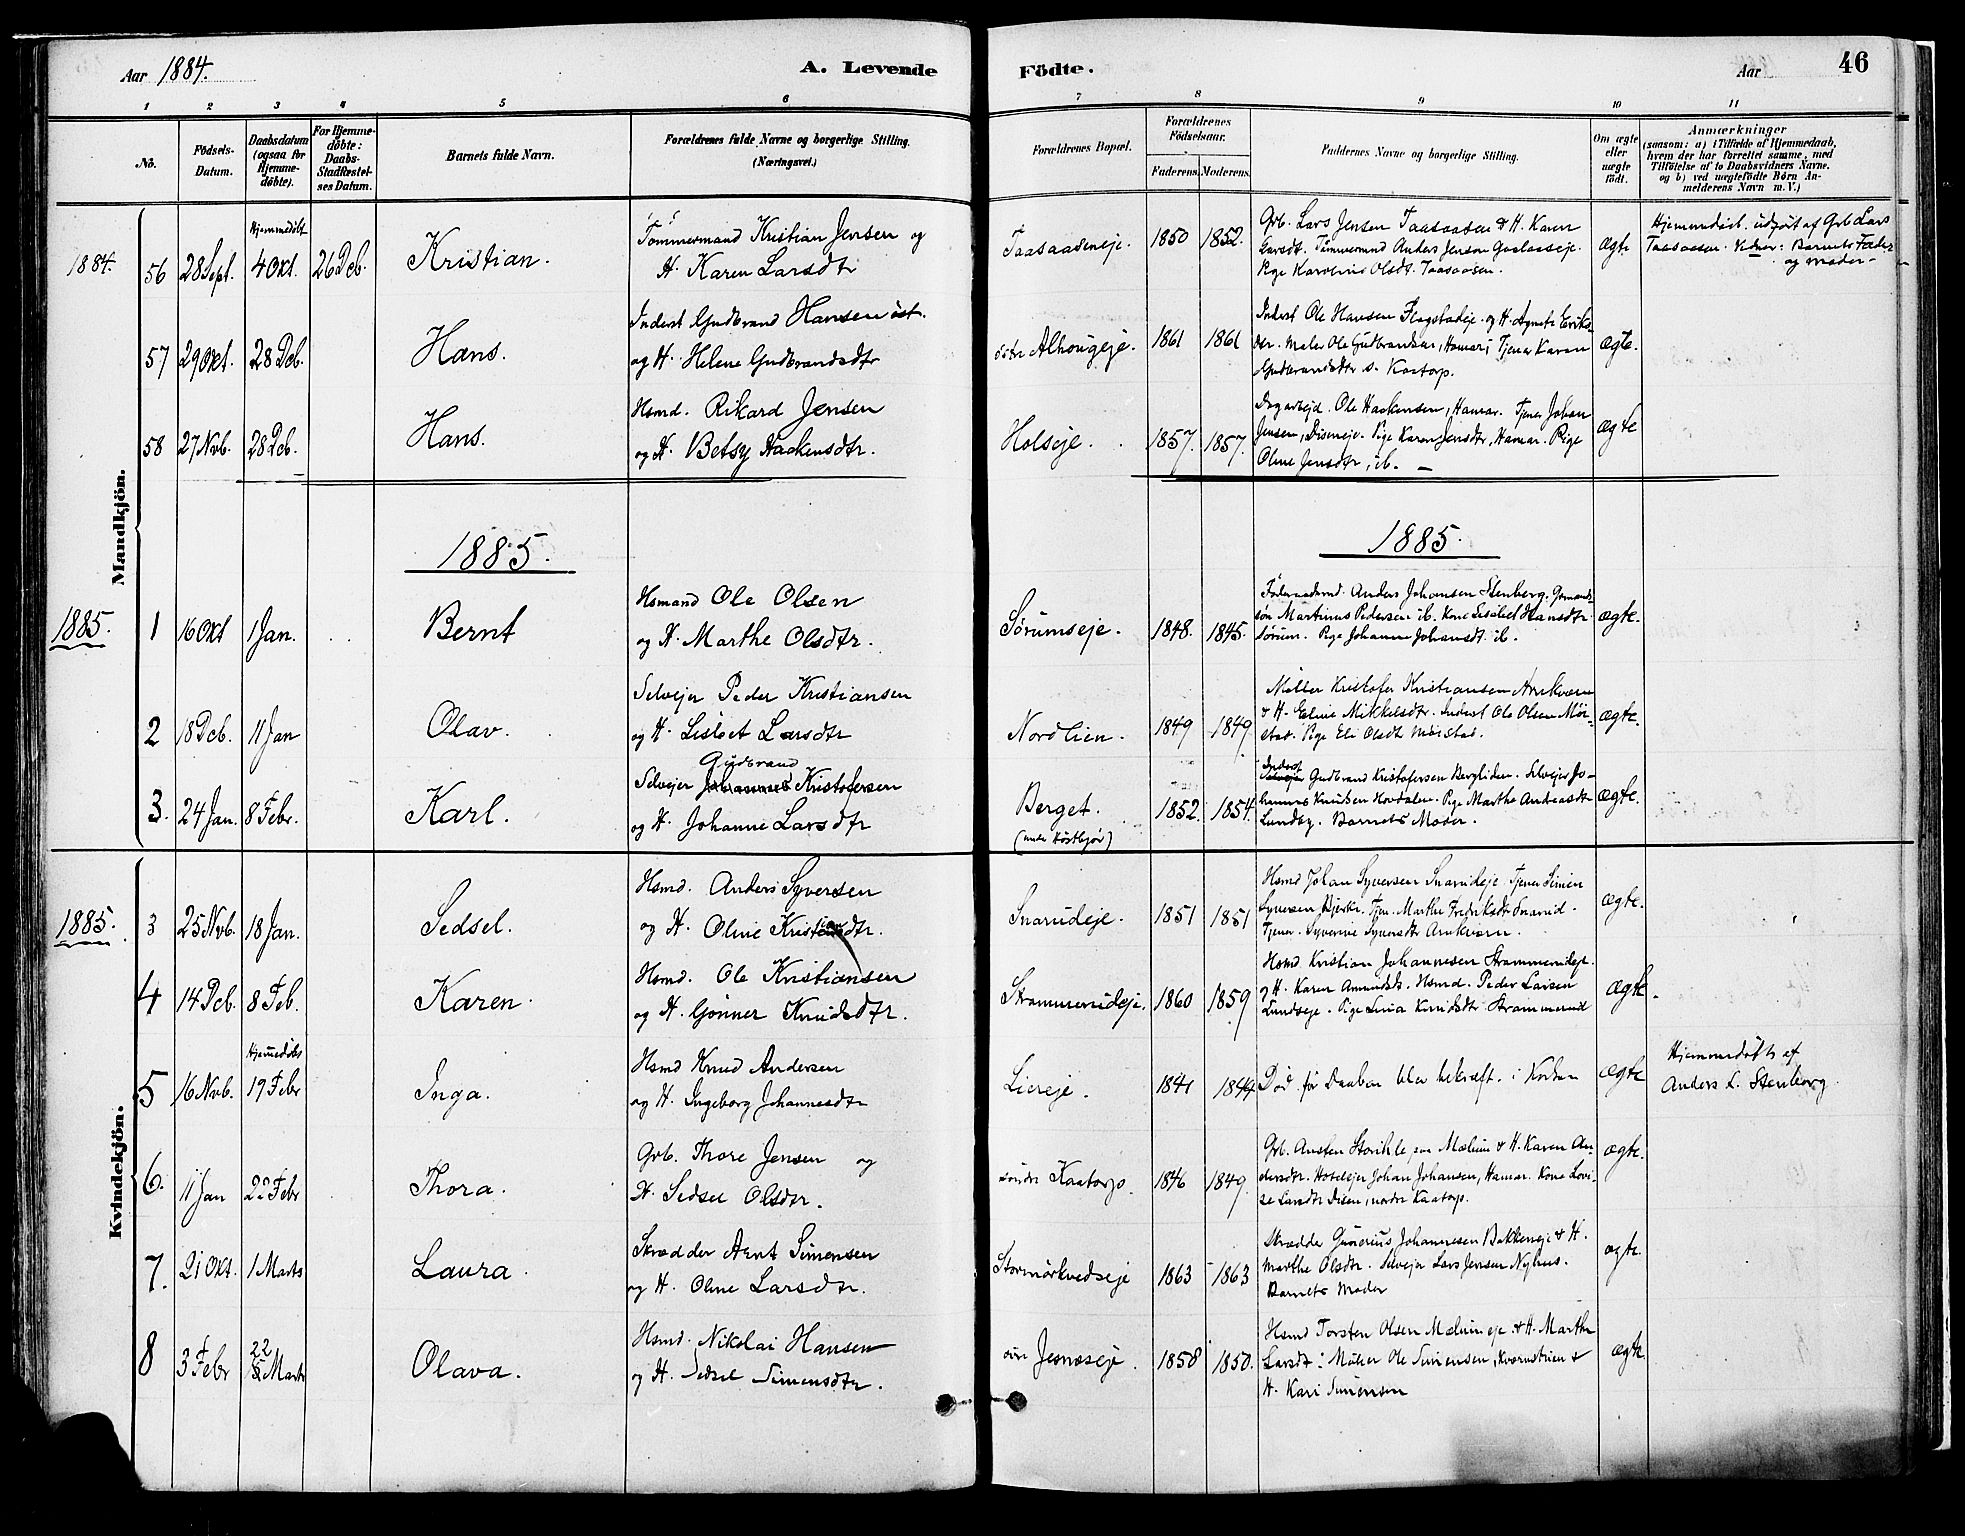 Aar 1884.
A. Levende Födte.
Aar
46
1 2 3 4 5 6 7 8 9 10 11
No.
Födsels-Datum.
Daabsdatum (ogsaa for Hjemme-döbte).
For Hjemme-döbte: Daabs-Stadfæstel-ses Datum.
Barnets fulde Navn.
Forældrenes fulde Navne og borgerlige Stilling. (Næringsvei.)
Forældrenes Bopæl.
Forældrenes Födselsaar.
Faderens. Moderens.
Faddernes Navne og borgerlige Stilling.
Om ægte eller uægte födt.
Anmærkninger
(saasom: a) i Tilfælde af Hjemmedaab,
hvem der har forrettet samme, med
Tilföielse af to Daabsvidners Navne.
og b) ved uægtefödte Börn An-
melderens Navn m. V.)
Mandkjön.
1884. 56 28 Sept. Hjemmedöbt 4 Okt. 26 Dcb. Kristian.
Tømmermand Kristian Jensen og
H. Karen Larsdtr
Taasaaseneje. 1850 1852.
Grb. Lars Jensen Taasaasen & H. Karen
Larsdt. Tømmermd Anders Jensen
Pige Karoline Olsdt. Taasaasen.
ægte
Hjemmedöbt. udført af Grb Lars
Taasaasen. Vidner: Barnets Fader
og Moder-
57 29 Okt. 28 Dcb. Hans.
Inderst Gudbrand Hansen
og H. Helene Gudbrandsdtr
østre Alhougeje. 1861 1861
Inderst Ole Hansen Flagstadeje. og H. Agnete Eriks-
dtr. Maler Ole Gudbrandsen, Hamar; Tjener Karen
Gudbrandsdtr s. Kaatorp.
ægte.
58 27 Nvb. 28 Dcb. Hans.
Hsmd. Rikard Jensen
og H. Betsy Haakensdtr.
Holseje. 1857. 1857.
Dagarbejd. Ole Haakensen, Hamar. Tjener Johan
Jensen, Diseneje. Pige Karen Jensdtr, Hamar. Pige
Oline Jensdtr, ib.
ægte
1885.
1885.
1885. 1 16 Okt 1 Jan. Bernt
Hsmand Ole Olsen
og H. Marthe Olsdtr.
Sørumseje. 1848. 1845.
Føderaadsmd. Anders Johansen Stenberg. Grmands-
søn Martinus Pedersen ib. Kone Lisabet Hansdtr
Sørum. Pige Johanne Johansdt. ib.
ægte.
2 18 Dcb. 11 Jan Olav.
Selvejer Peder Kristiansen
og H. Lisbet Larsdtr
Nordlien. 1849 1849.
Møller Kristofer Kristiansen Arnkværn
& H. Eline Mikkelsdtr. Inderst Ole Olsen Mør-
stad. Pige Eli Olsdt Mørstad.
ægte.
3. 24 Jan. 8 Febr. Karl.
Gudbrand
Selvejer Johannes Kristofersen
og H. Johanne Larsdtr
Berget. 1852. 1854.
Inderst
Selvejer Gudbrand Kristofersen Bergliden. Selvejer Jo-
hannes Knudsen Hovdalen. Pige Marthe Andreasdt
Lundby. Barnets Moder.
ægte.
Kvindekjön.
1885. 3 25 Nvb. 18 Jan. Sedsel.
Hsmd. Anders Syversen
og H. Oline Kristiansdtr.
Snarudeje. 1851 1851
Hsmd Johan Syversen Snarudeje Tjener Simen
Syversen Bjerke. Tjen. Marthe Fredriksdt Snarud.
Tjener. Syverine Syversdtr Arnkværn.
ægte.
4 14 Dcb. 8 Feb. Karen.
Hsmd. Ole Kristiansen
og H. Gønner Knudsdtr.
Strammerudeje. 1860 1859
Hsmd. Kristian Johannesen Strammerudeje.
H. Karen Amundsdt. Hsmd. Peder Larsen
Lundseje. Pige Lina Knudsdtr Strammerud
ægte.
5 16 Nvb. Hjemmedöbt 19 Febr Inga.
Hsmd Knud Andersen
og H. Ingeborg Johannesdtr
Liereje. 1841 1844
Død før Daaben blev bekræft. i Kirken
ægte
Hjemmedöbt af
Anders L. Stenberg.
6. 11 Jan 22 Febr Thora.
Grb. Thore Jensen og
H. Sedsel Olsdtr.
søndre Kaatorp. 1846 1849.
Grb. Austen Storihle, paa Mælum & H. Karen An-
dersdtr. Hotelejer Johan Johansen, Hamar. Kone Lovi-
se Larsdtr Disen, nordre Kaatorp.
ægte.
7. 21 Okt. 1 Marts Laura.
Skrædder Arnt Simensen
og H. Oline Larsdtr.
Stormørkvedseje 1863 1863
Skrædder Gunerius Johannesen Bakkeneje & H.
Marthe Olsdtr. Selvejer Lars Jensen Nyhus.
Barnets Moder
ægte.
8 3 Febr 22 Marts Olava.
Hsmd. Nikolai Hansen
og H. Sedsel Simensdtr.
Jesnæseje. 1858 1850.
Hsmd Torsten Olsen Mælumeje. & H. Marthe
Larsdt: Møller Ole Simensen, Kværnstuen &
H. Kari Simensen
ægte.